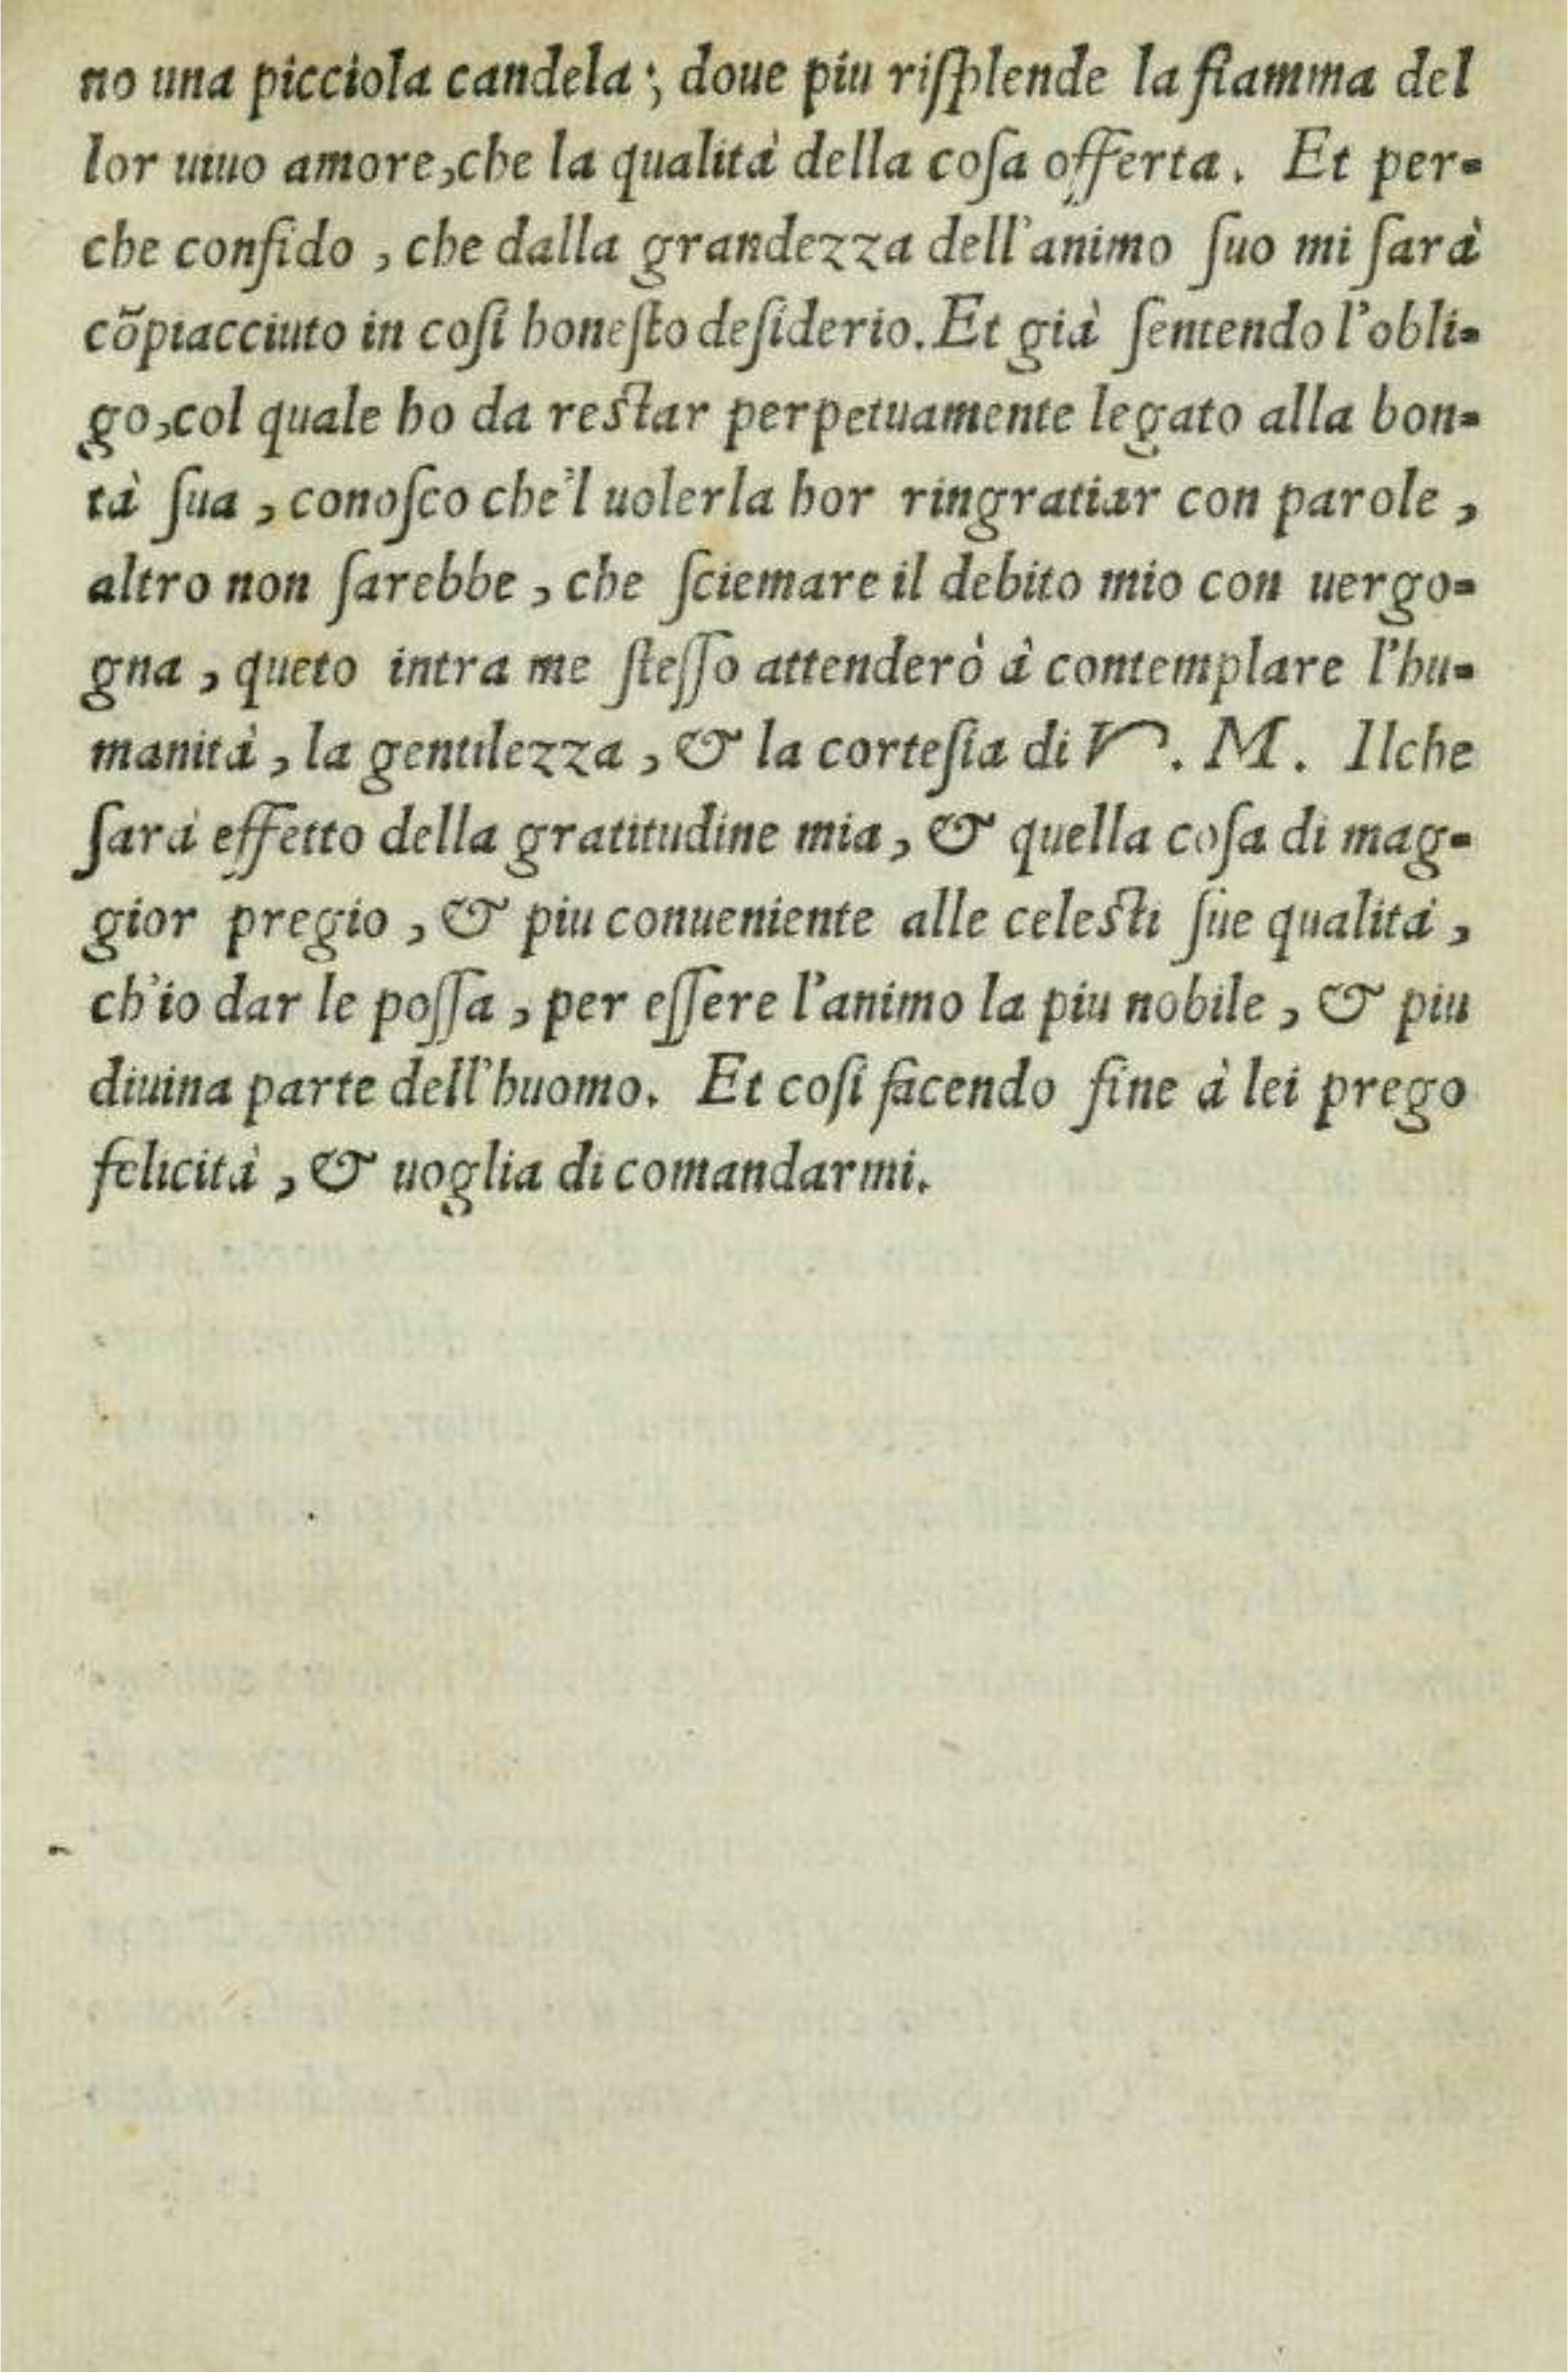 no una picciola candela; doue piu riſplende la fiamma del
lor uiuo amore, che la qualità della coſa offerta. Et per-
che confido, che dalla grandezza dell'animo ſuo mi ſarà
cõpiacciuto in coſi honeſto deſiderio. Et già ſentendo l'obli-
go, col quale ho da reſtar perpetuamente legato alla bon-
tà ſua, conoſco che'l uolerla hor ringratiar con parole,
altro non ſarebbe, che ſciemare il debito mio con uergo-
gna, queto intra me ſteſſo attenderò à contemplare l'hu-
manità, la gentilezza, & la corteſia di V. M. Ilche
ſarà effetto della gratitudine mia, & quella coſa di mag-
gior pregio, & piu conueniente alle celeſti ſue qualità,
ch'io dar le poſſa, per eſſere l'animo la piu nobile, & piu
diuina parte dell'huomo. Et coſi facendo fine à lei prego
felicità, & uoglia di comandarmi.